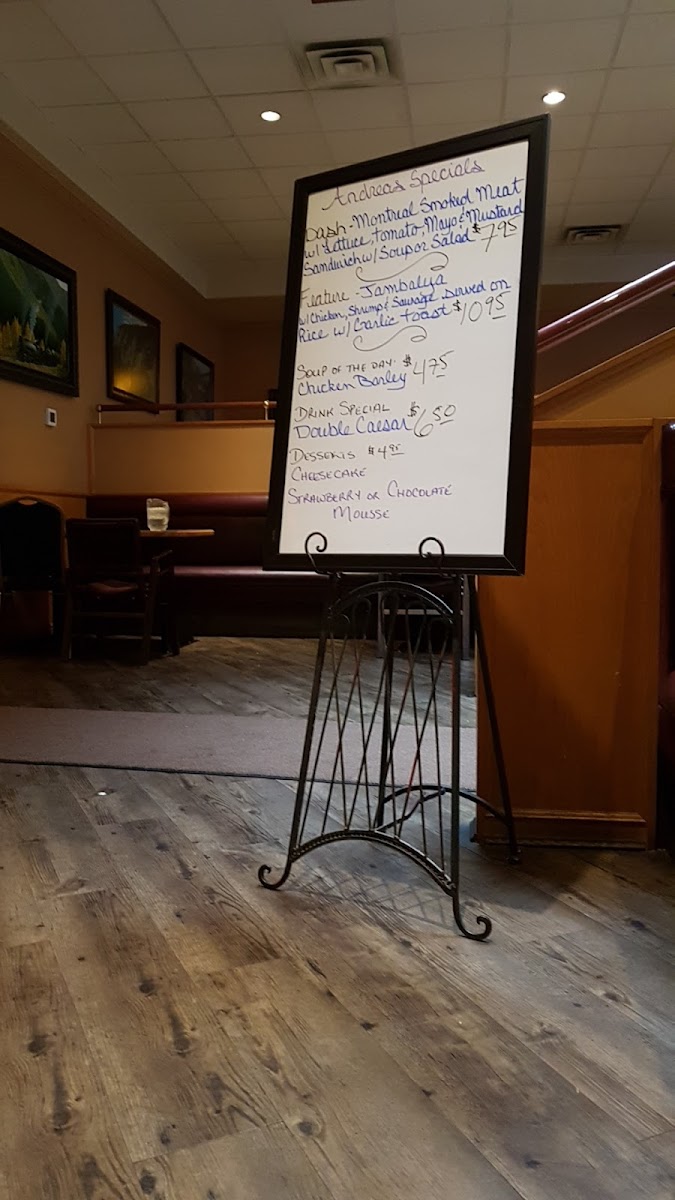 Andreas Specials
Dash - Montreal Smoked Meat
w/ Lettuce, Tomato, Mayo & Mustard
Sandwich w/ Soup or Salad $7.95
Feature - Jambalya
w/ Chicken, Shrimp & Sausage Served on
Rice w/ Garlic Toast $10.95
Soup of the Day. $4.75
Chicken Barley
Drink Special $6.50
Double Caesar
Desserts $4.95
Cheesecake
Strawberry or Chocolate
Mousse